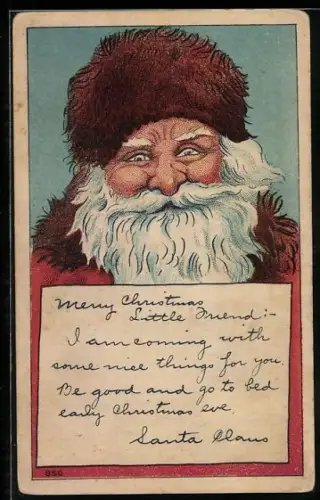 Merry Christmas
Little Friend:-
I am coming with
some nice things for you.
Be good and go to bed
early Christmas eve.
Santa Claus